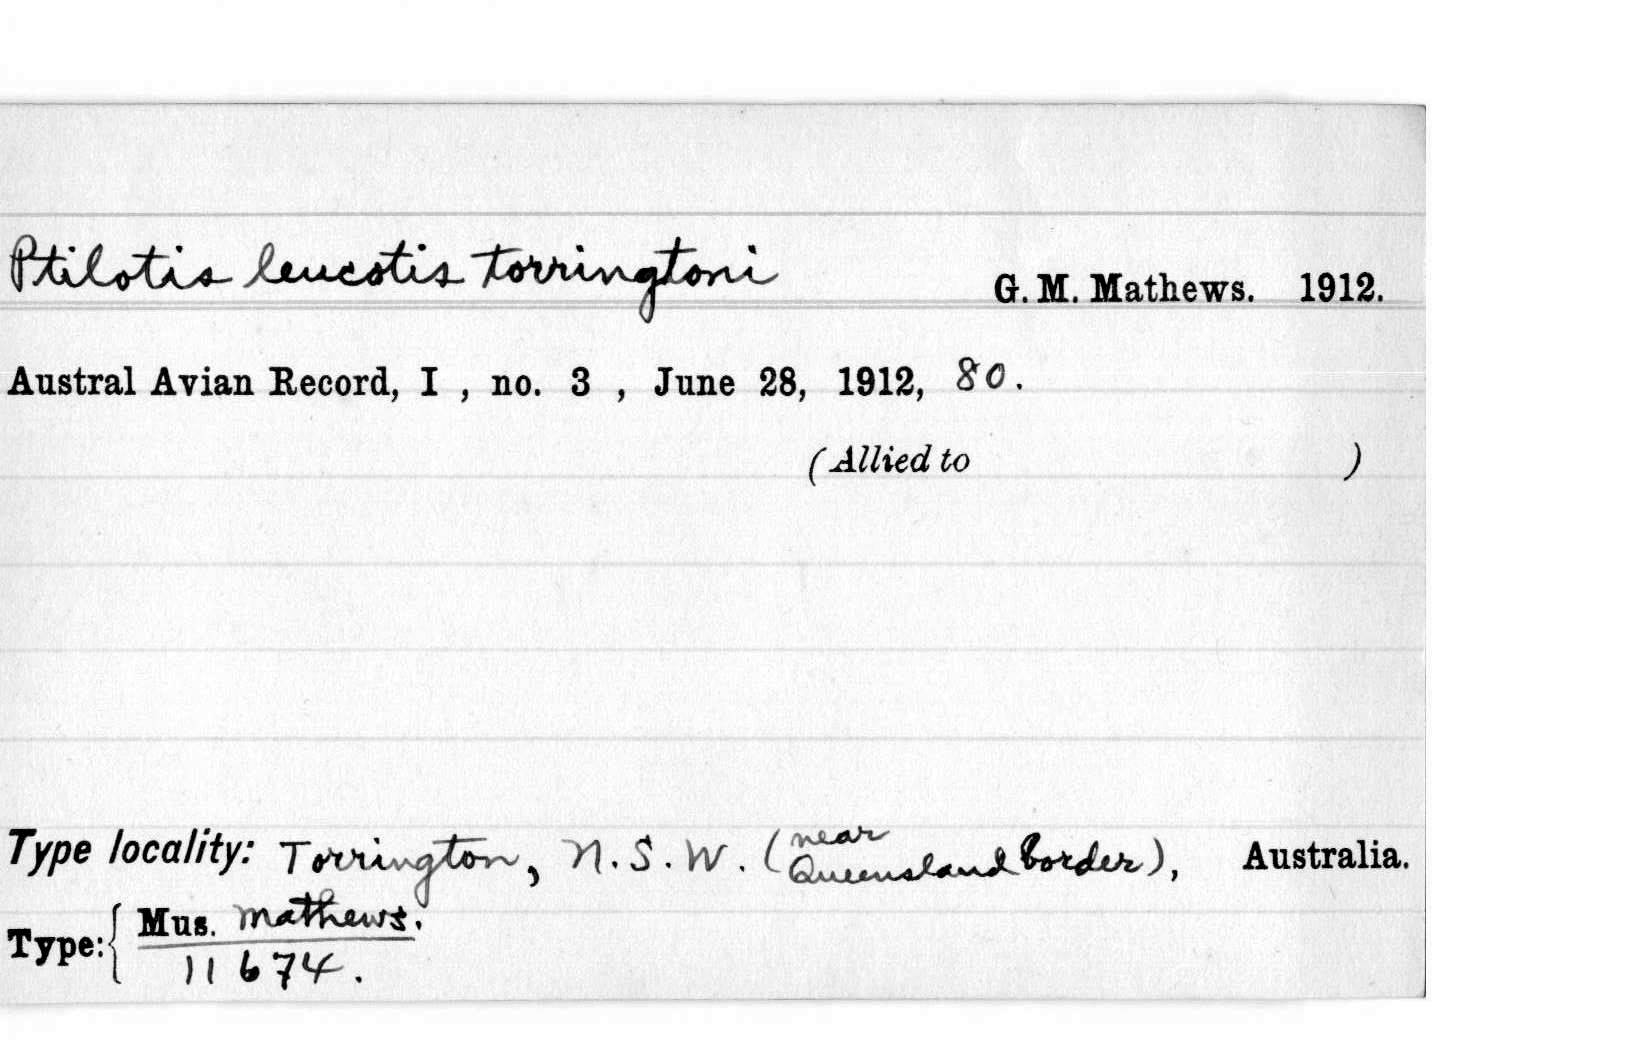 Ptilotis leucotis torringtoni G. M. Mathews. 1912.
Austral Avian Record, I , no. 3 , June 28, 1912, 80.
(Allied to )
Type locality: Torrington, N.S.W. (near Queensland border), Australia.
Type: { Mus. Mathews.
11674.